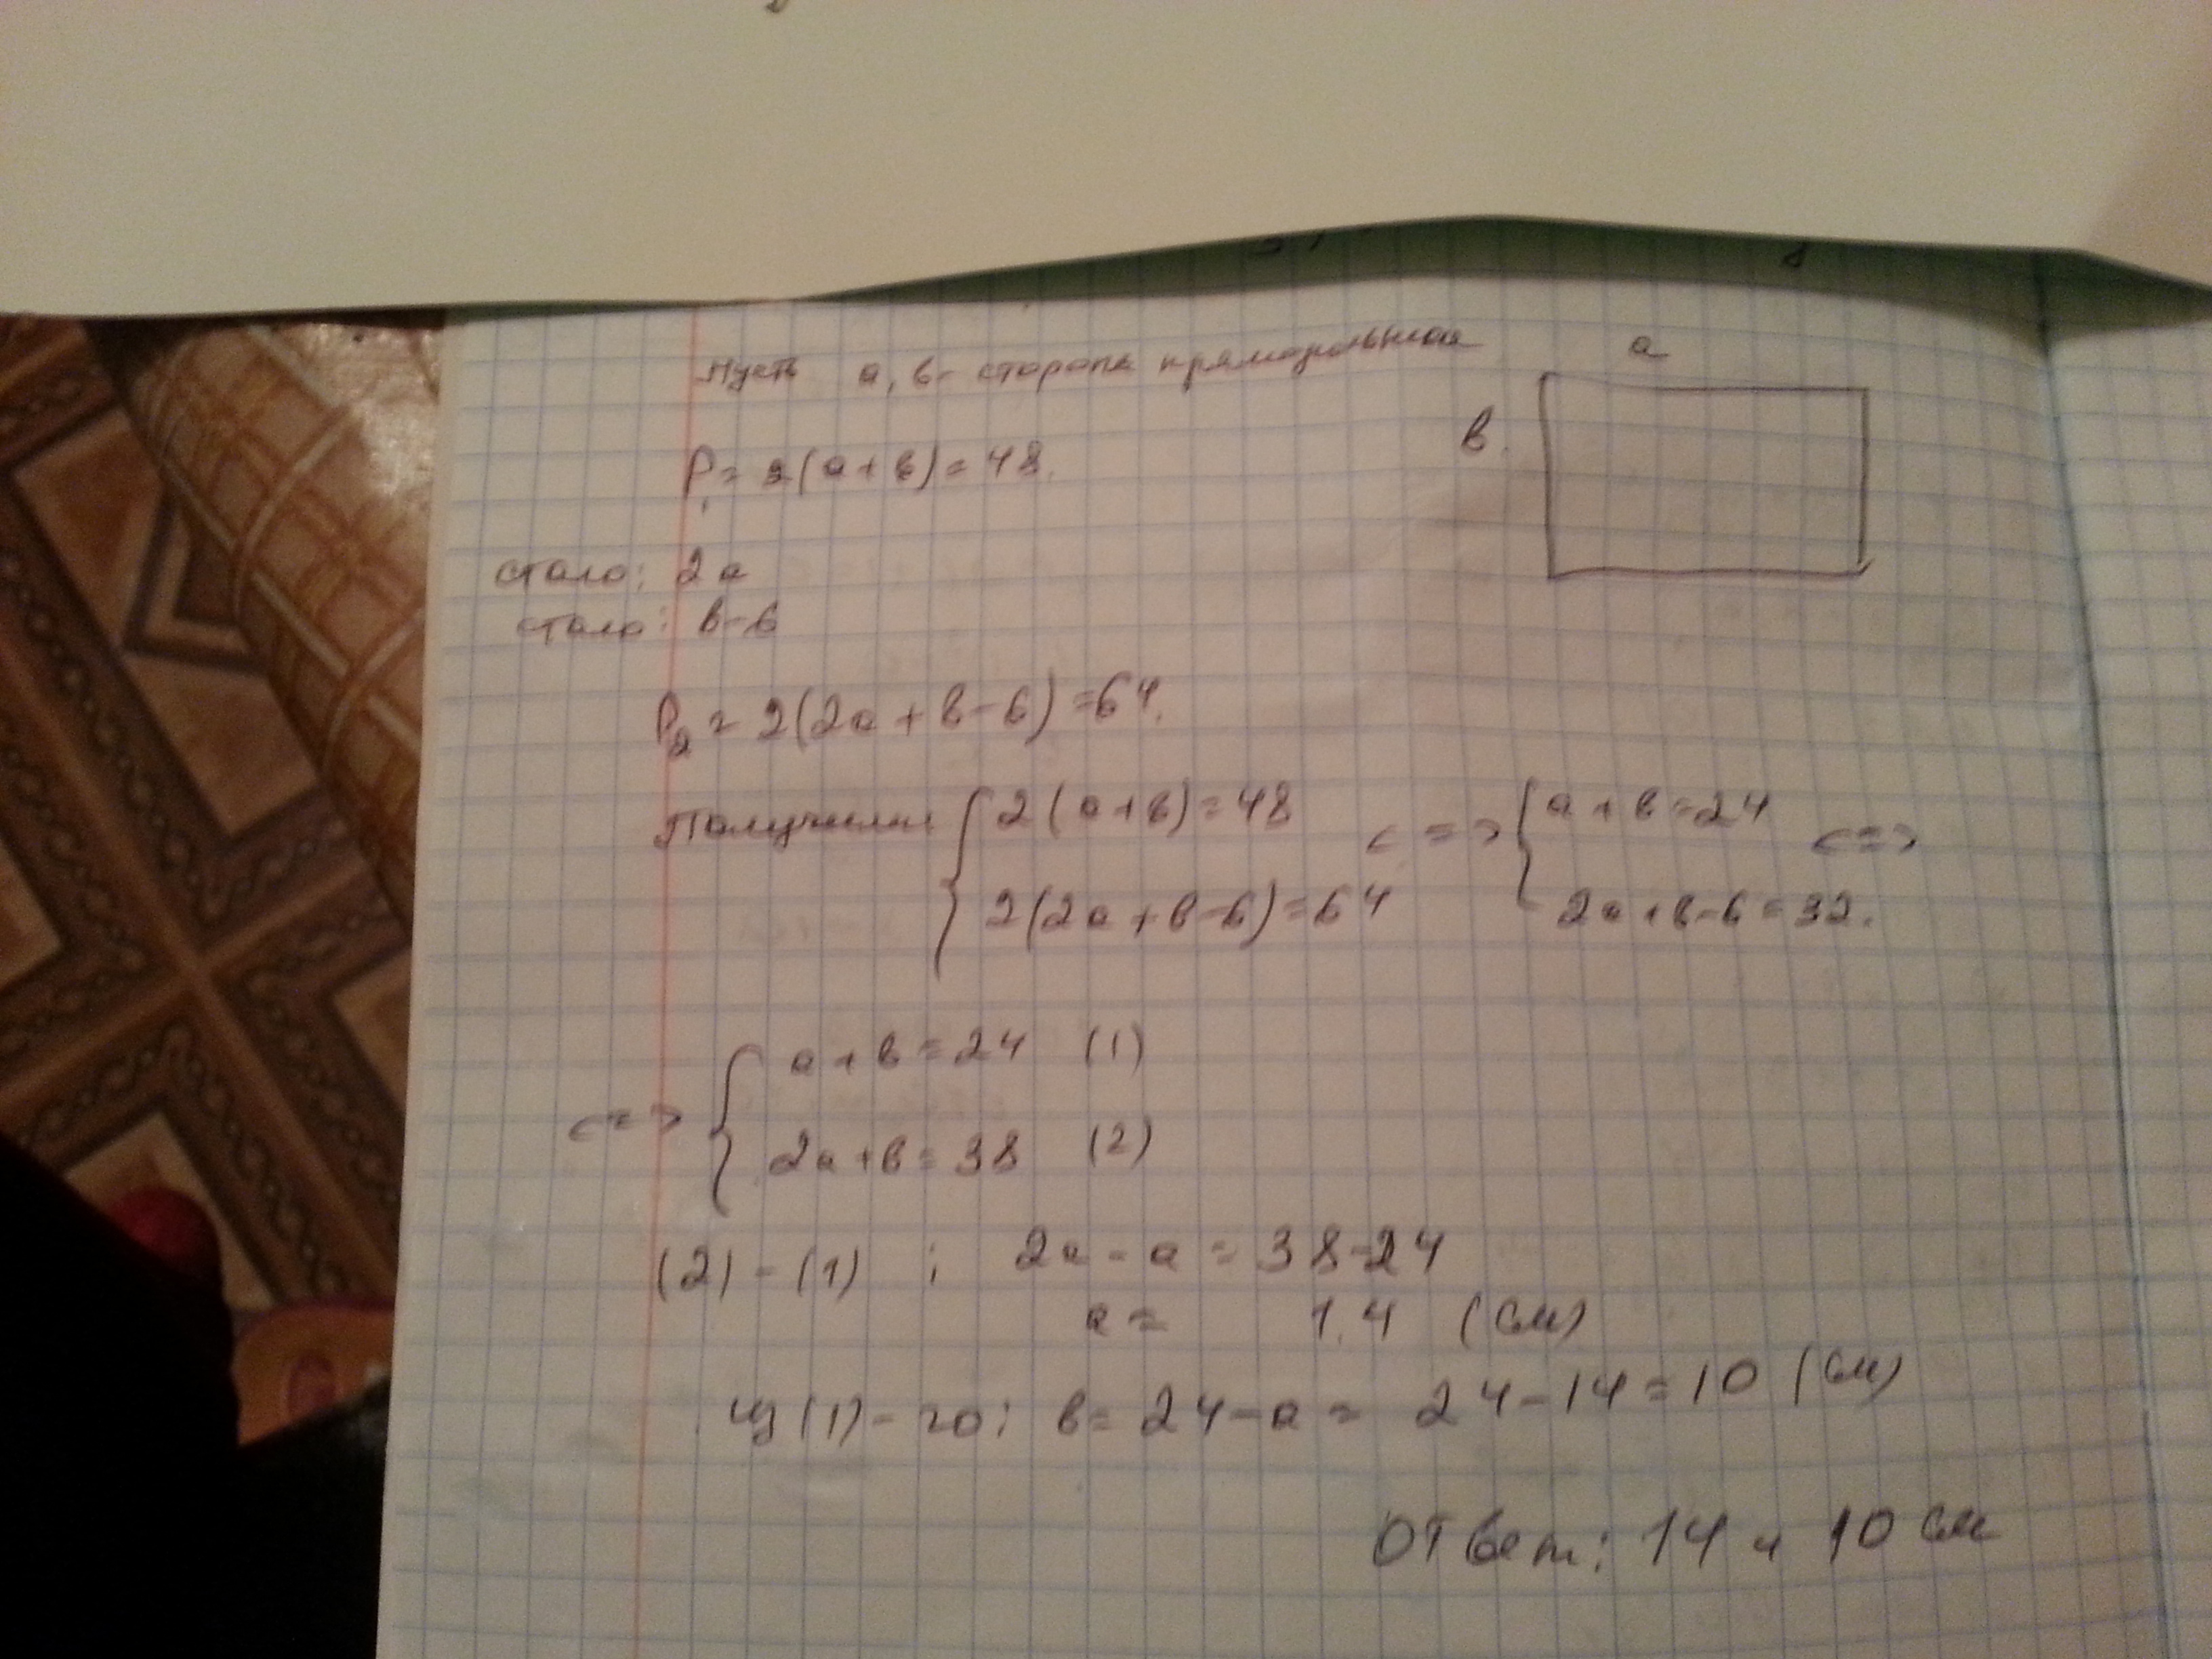 Пусть a, в - стороны прямоугольника
a
в.
P₁ = 2(a+в) = 48.
стало: 2a
стало: в-6
P₂ = 2(2a + в - 6) = 64.
Получили { 2(a+в) = 48 <=> { a+в = 24 <=>
2(2a+в-6) = 64 2a+в-6 = 32.
<=> { a+в = 24 (1)
2a+в = 38 (2)
(2) - (1) ; 2a - a = 38-24
a = 14 (см)
из (1) - го: в = 24-a = 24-14 = 10 (см)
Ответ: 14 и 10 см